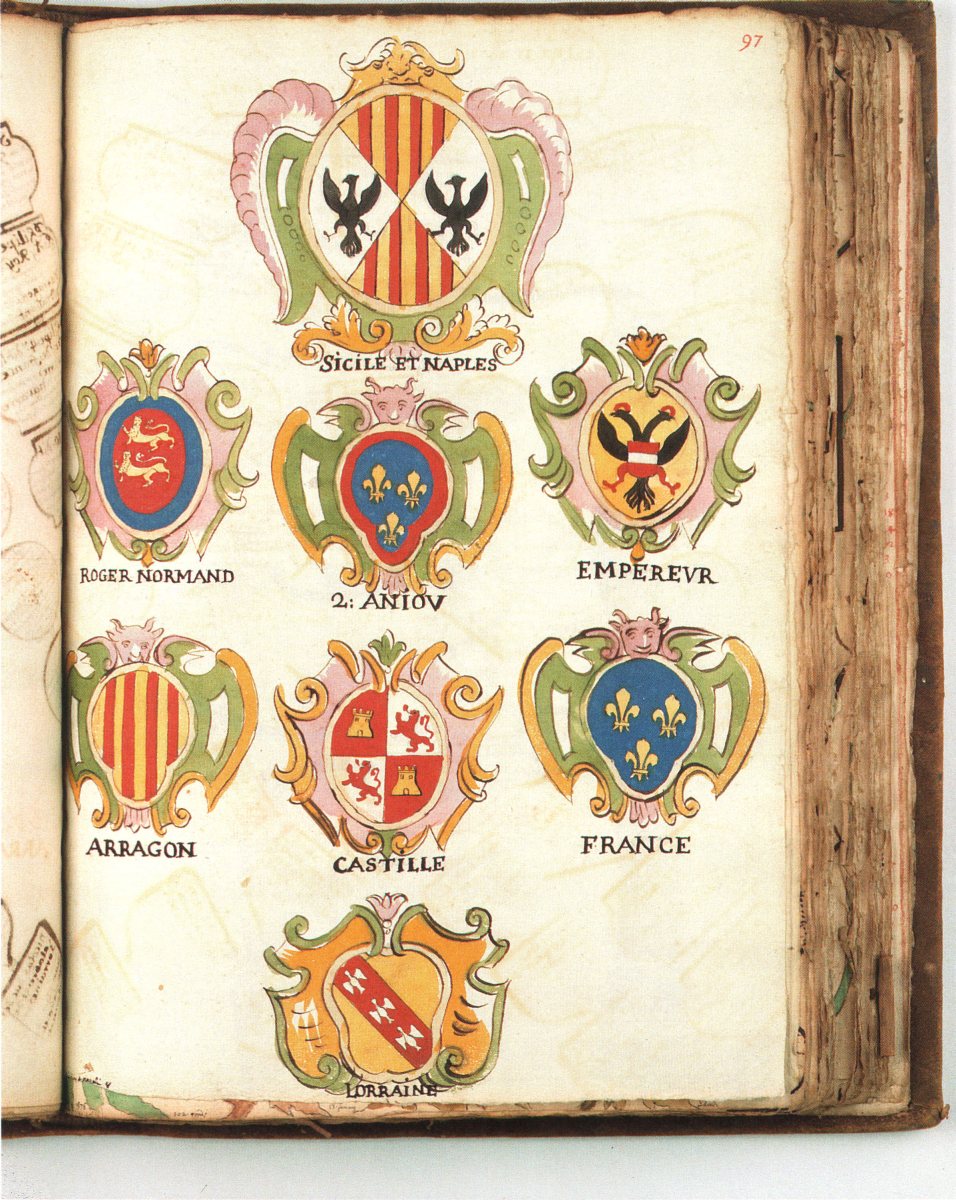 97
SICILE ET NAPLES
ROGER NORMAND
2: ANIOV
EMPEREVR
ARRAGON
CASTILLE
FRANCE
LORRAINE